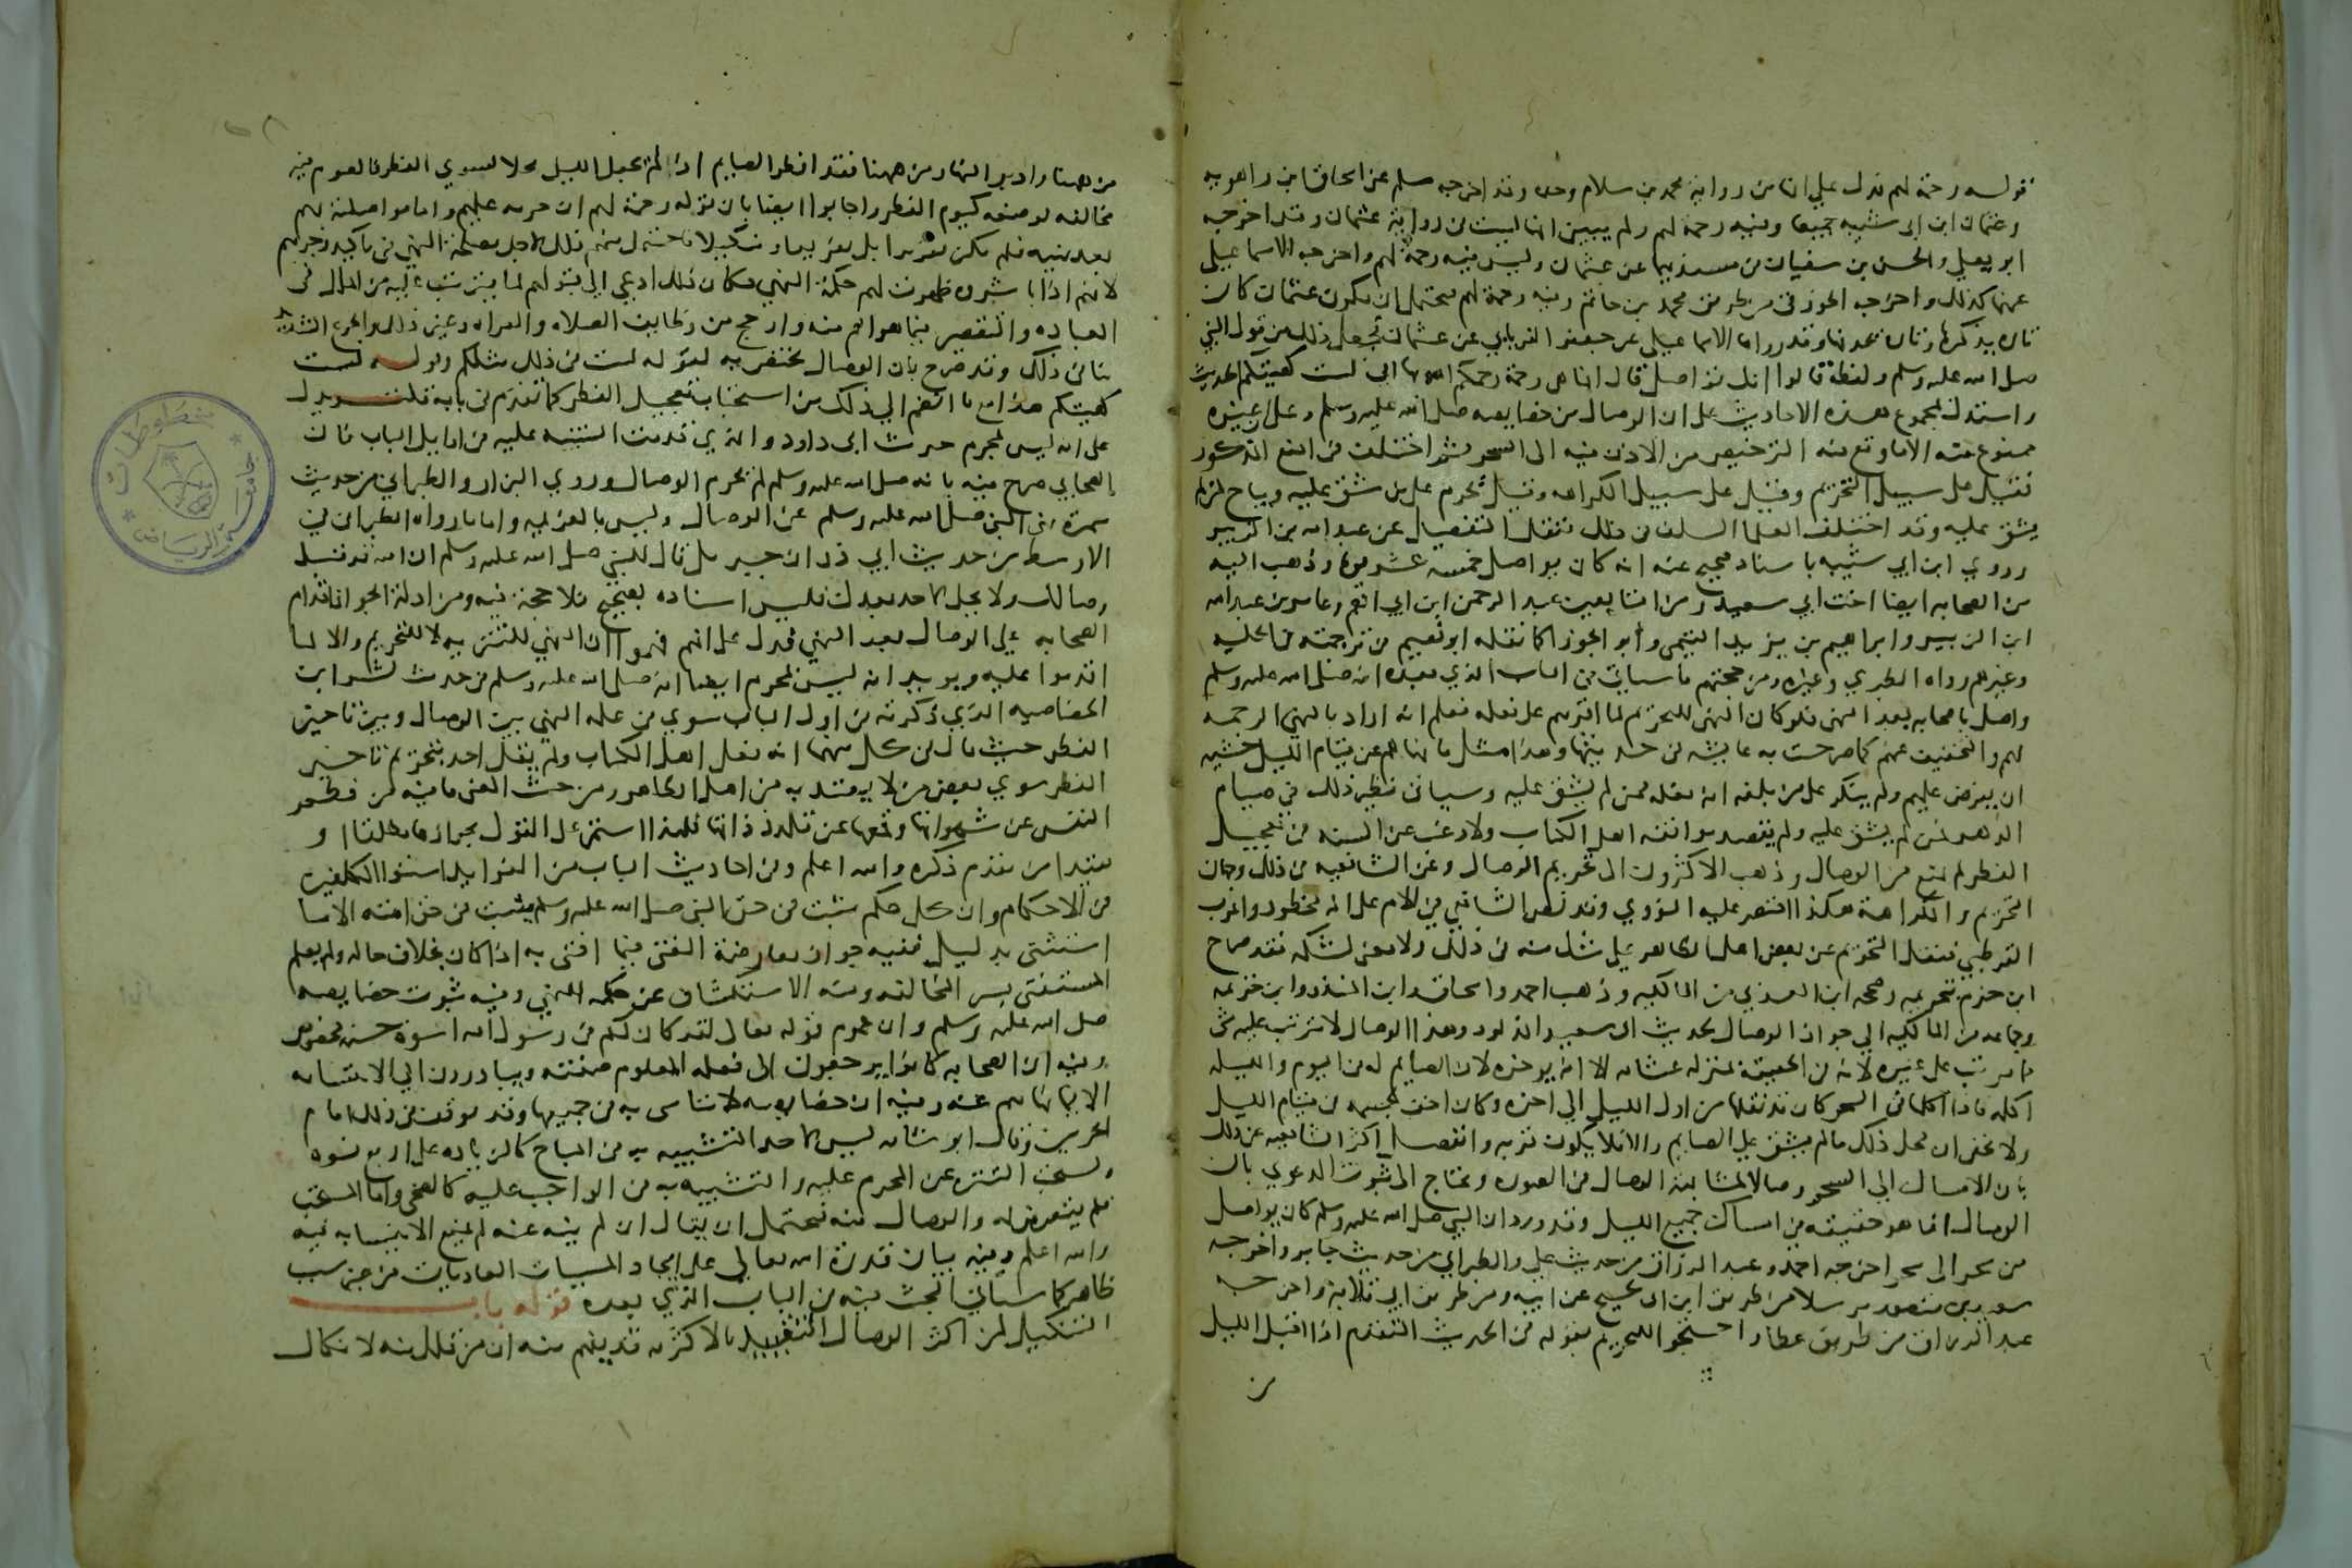 قوله رحمة لهم فدل على انها من رواية محمد بن سلام وحده وقد اخرجه مسلم عن اسحاق ابن راهويه
وعثمان ابن ابى شيبه جميعا وفيه رحمة لهم ولم يبين انها ليست من رواية عثمان وقد اخرجه
ابو يعلي والحسن بن سفيان في مسنديهما عن عثمان وليس فيه رحمة لهم واخرجه الاسماعيلي
عنهما كذلك واخرجه الجوزقي من طريق محمد بن حاتم وفيه رحمة لهم فيحتمل ان يكون عثمان كان
تاره يذكرها وتاره يحذفها وقد رواها الاسماعيلي عن جعفر الفريابي عن عثمان فجعل ذلك من قول النبي
صلى الله عليه وسلم ولفظه قالوا انك تواصل قال انما هي رحمة رحمكم الله بها اني لست كهيئتكم الحديث
واستدل بمجموع هذه الاحاديث على ان الوصال من خصايصه صلى الله عليه وسلم وعلى ان غيره
ممنوع منه الا ما وقع فيه الترخيص من الاذن فيه الى السحر ثم اختلف في المنع المذكور
فقيل على سبيل التحريم وقيل على سبيل الكراهه وقيل يحرم على من شق عليه ويباح لمن لم
يشق عليه وقد اختلف العلما السلف في ذلك فنقل التفصيل عن عبد الله بن الزبير
وروي ابن ابي شيبه باسناد صحيح عنه انه كان يواصل خمسه عشر يوما وذهب اليه
من الصحابه ايضا اخت ابي سعيد ومن التابعين عبد الرحمن ابن ابي انعم وعامر بن عبد الله
ابن الزبير وابراهيم بن يزيد التيمي وابو الجوزا كما نقله ابو نعيم في ترجمته في الحليه
وغيرهم رواه الطبري وغيره ومن حجتهم ما سياتي في الباب الذي بعده انه صلى الله عليه وسلم
واصل باصحابه بعد النهي فلو كان النهي للتحريم لما اقرهم على فعله فعلم انه اراد بالنهي الرحمه
لهم والتخفيف عنهم كما صرحت به عايشه في حديثها وهذا مثل ما نهاهم عن قيام الليل خشيه
ان يفرض عليهم ولم ينكر على من بلغه انه فعله ممن لم يشق عليه وسياتي نظير ذلك في صيام
الدهر فمن لم يشق عليه ولم يقصد موافقه اهل الكتاب ولا رغب عن السنه في تعجيل
الفطر لم يمنع من الوصال وذهب الاكثرون الى تحريم الوصال وعن الشافعيه في ذلك وجهان
التحريم والكراهة هكذا اقتصر عليه النووي وقد نص الشافعي في الام على انه محظور واغرب
القرطبي فنقل التحريم عن بعض اهل الظاهر علي شك منه في ذلك ولا معنى لشكه فقد صرح
ابن حزم بتحريمه وصححه ابن العربي من المالكيه وذهب احمد واسحاق وابن المنذر وابن خزيمه
وجماعه من المالكيه الي جواز الوصال الى السحر لحديث ابي سعيد المذكور وهذا الوصال لا يترتب عليه شى
مما يترتب على غيره لانه في الحقيقة بمنزله عشايه الا انه يوخره لان الصايم له في اليوم والليله
اكله فاذا اكلها في السحر كان قد نقلها من اول الليل الي اخره وكان اخف لجسمه في قيام الليل
ولا يخفى ان محل ذلك ما لم يشق علي الصايم والا فلا يكون قربه وانفصل اكثر الشافعيه عن ذلك
بان الامساك الي السحر وصالا لمشابهة الوصال في الصورة ويحتاج الى ثبوت الدعوي بان
الوصال انما هو حقيقته في امساك جميع الليل وقد ورد ان النبي صلى الله عليه وسلم كان يواصل
من سحر الى سحر اخرجه احمد وعبد الرزاق من حديث علي والطبراني من حديث جابر واخرجه
سعيد بن منصور مرسلا من طريق ابن ابى نجيح عن ابيه ومن طريق ابي قلابة واخرجه
عبد الرزاق من طريق عطا واحتجوا للتحريم بقوله في الحديث المتقدم اذا اقبل الليل
من
من ههنا وادبر النهار من ههنا فقد افطر الصايم اذا لم يجعل الليل محلا لسوي الفطر فالصوم فيه
مخالفه لوضعه كيوم الفطر واجابوا ايضا بان قوله رحمة لهم ان حرمه عليهم واما مواصلته بهم
بعد نهيه فلم يكن تقريرا بل تقريعا وتنكيلا فاحتمل منهم ذلك لاجل مصلحة النهي في تاكيد زجرهم
لانهم اذا باشروه ظهرت لهم حكمة النهي وكان ذلك ادعي الى قبولهم لما يترتب عليه من الملل في
العباده والتقصير فيما هو اهم منه وارجح من وظايف الصلاه والقراه وغير ذلك والجوع الشديد
ينافي ذلك وقد صرح بان الوصال يختص به لقوله لست في ذلك مثلكم وقوله لست
كهيئتكم هذا مع ما انضم الي ذلك من استحباب تعجيل الفطر كما تقدم في بابه قلت ويدل
على انه ليس بمحرم حديث ابى داود والذي قدمت التنبيه عليه في اوايل الباب فان
الصحابي صرح فيه بانه صلى الله عليه وسلم لم يحرم الوصال وروي البزار والطبراني من حديث
سمرة نهى النبي صلى الله عليه وسلم عن الوصال وليس بالعزيمه واما ما رواه الطبراني في
الاوسط من حديث ابي ذر ان جبريل قال للنبي صلى الله عليه وسلم ان الله قد قبل
وصالك ولا يحل لاحد بعدك فليس اسناده بصحيح فلا حجة فيه ومن ادلة الجواز اقدام
الصحابه علي الوصال بعد النهي فدل على انهم فهموا ان النهي للتنزيه لا للتحريم والا لما
اقدموا عليه ويويد انه ليس بمحرم ايضا انه صلى الله عليه وسلم في حديث بشر ابن
الخصاصيه الذي ذكرته في اول الباب سوي في علة النهي بين الوصال وبين تاخير
الفطر حيث قال في كل منهما انه فعل اهل الكتاب ولم يقل احد بتحريم تاخير
الفطر سوي بعض من لا يعتد به من اهل الظاهر ومن حيث المعنى ما فيه من فطم
النفس عن شهواتها وقمعها عن تلذذاتها فلهذا استمر على القول بجوازه مطلقا او
مقيدا من تقدم ذكره والله اعلم وفي احاديث الباب من الفوايد استوا المكلفين
في الاحكام وان كل حكم ثبت في حق النبي صلى الله عليه وسلم يثبت في حق امته الا ما
استثنى بدليل ففيه جواز معارضة المفتى فيما افتى به اذا كان بخلاف حاله ولم يعلم
المستفتي بسر المخالفه وفيه الاستكشاف عن حكمة النهي وفيه ثبوت خصايصه
صلى الله عليه وسلم وان عموم قوله تعالى لقد كان لكم في رسول الله اسوة حسنه مخصوص
وفيه ان الصحابه كانوا يرجعون الى فعله المعلوم صفته ويبادرون الي الايتسا به
الا فيما نهاهم عنه وفيه ان خصايصه لا يتاسى به في جميعها وقد توقف في ذلك امام
الحرمين وقال ابو شامه ليس لاحد التشبيه به في المباح كالزياده على اربع نسوه
ويستحب التنزه عن المحرم عليه والتشبيه به في الواجب عليه كالضحى واما المستحب
فلم يتعرض له والوصال منه فيحتمل ان يقال ان لم ينه عنه لم يمنع الايتسا به فيه
والله اعلم وفيه بيان قدرة الله تعالي على ايجاد المسببات العاديات من غير سبب
ظاهر كما سياتي البحث فيه في الباب الذي بعده قوله باب
التنكيل لمن اكثر الوصال التقييد بالاكثر قد يفهم منه ان من قلل منه لا نكال
مخطوطات
جامعة الرياض